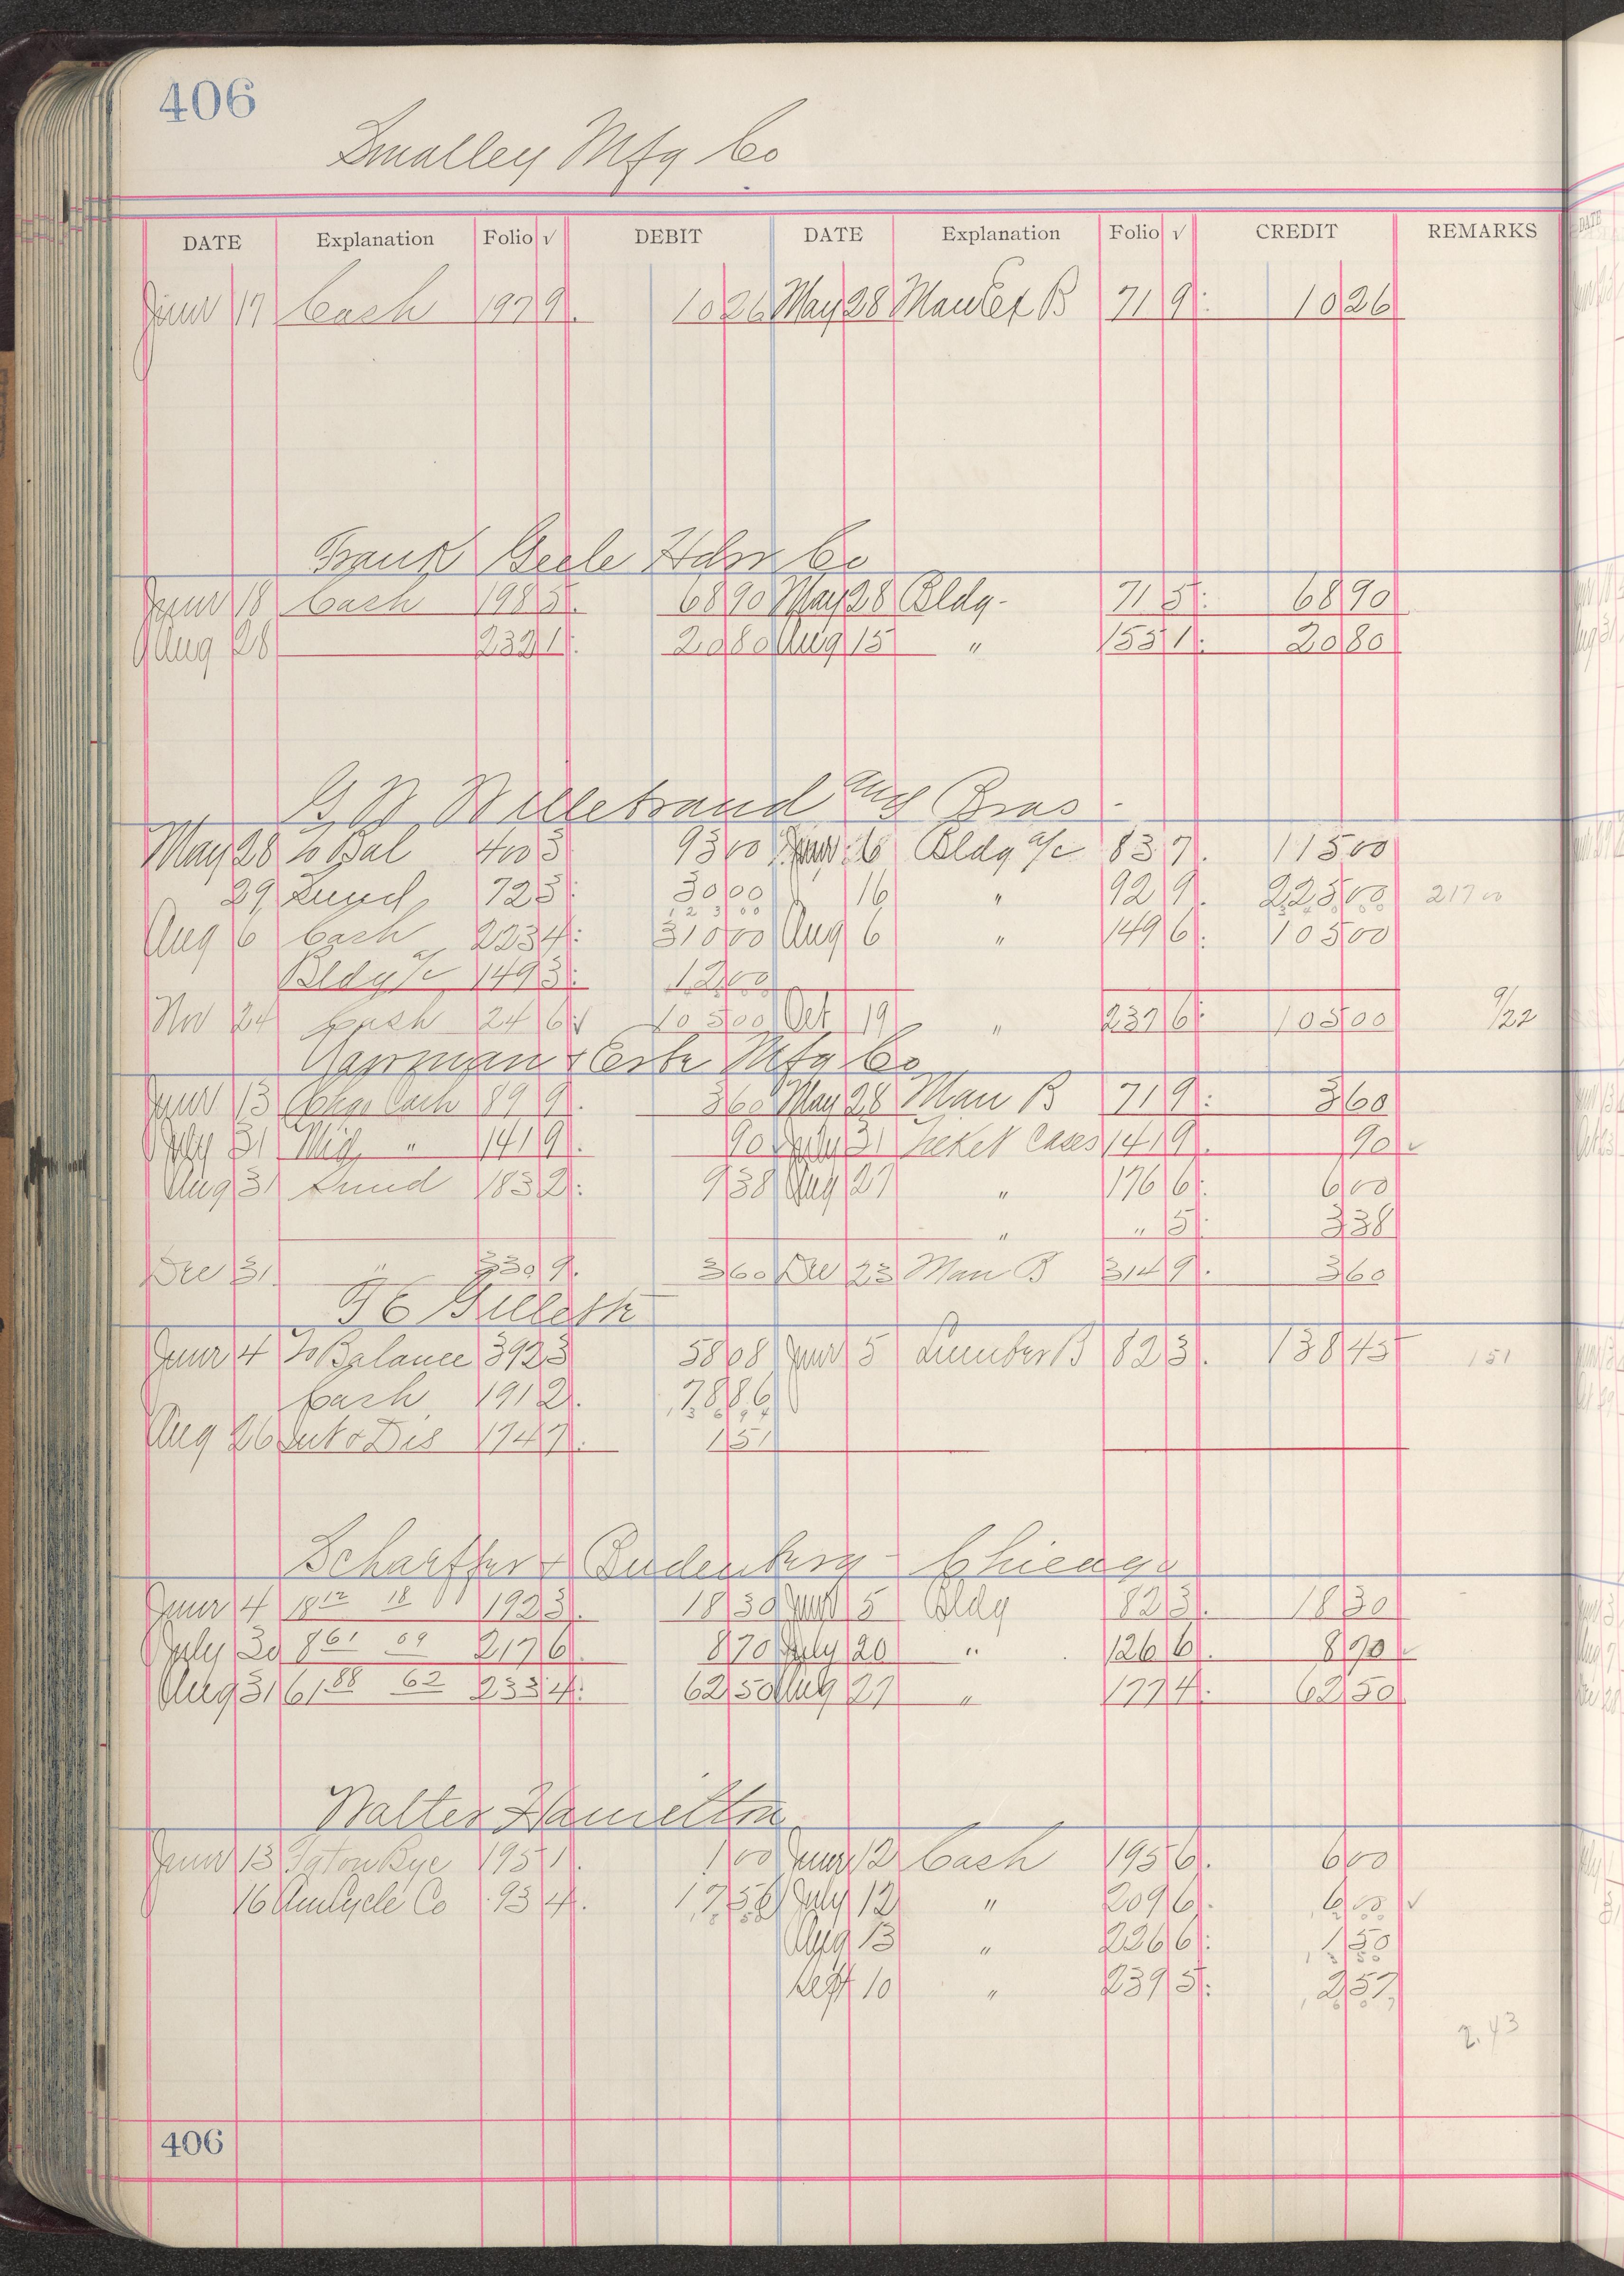 406
Smalley Mfg Co
DATE Explanation Folio √ DEBIT DATE Explanation Folio √ CREDIT REMARKS
June 17 Cash 197 9 10 26 May 28 Man Ex B 71 9 10 26
Frank Geele Hdw Co
June 18 Cash 198 5 68 90 May 28 Bldg 71 5 68 90
Aug 28 232 1 20 80 Aug 15 " 155 1 20 80
G W Willebrand and Bros
May 28 To Bal 400 3 93 00 June 6 Bldg a/c 83 7 115 00
29 Sund 72 3 30 00 16 " 92 9 225 00 217 00
1 2 3 00
Aug 6 Cash 223 4 310 00 Aug 6 " 149 6 105 00
Bldg a/c 149 3 12 00
Nov 24 Cash 24 6 √ 105 00 Oct 19 " 237 6 105 00 9/22
Yawman & Erbe Mfg Co
June 13 Cash 89 9 3 60 May 28 Man B 71 9 3 60
July 31 " 141 9 90 July 31 Ticket Cases 141 9 90 √
Aug 31 Sund 183 2 9 38 Aug 27 " 176 6 6 00
" " 5 3 38
Dec 31 " 330 9 3 60 Dec 23 Man B 314 9 3 60
June 4 To Balance 392 3 58 08 June 5 Lumber B 82 3 138 45 151
Cash 191 2 78 86
Aug 26 Int & Dis 174 7 1 51
Schaeffer & Budenberg Chicago
June 4 18 12 18 192 3 18 30 June 5 Bldg 82 3 18 30
July 20 8 61 09 217 6 8 70 July 20 " 126 6 8 70 √
Aug 31 61 88 62 233 4 62 50 Aug 27 " 177 4 62 50
Walter Hamilton
June 13 195 1 1 00 June 12 Cash 195 6 6 00
16 Am Cycle Co 93 4 17 56 July 12 " 209 6 6 00 √
Aug 13 " 226 6 1 50
Sept 10 " 239 5 2 57
2.43
406